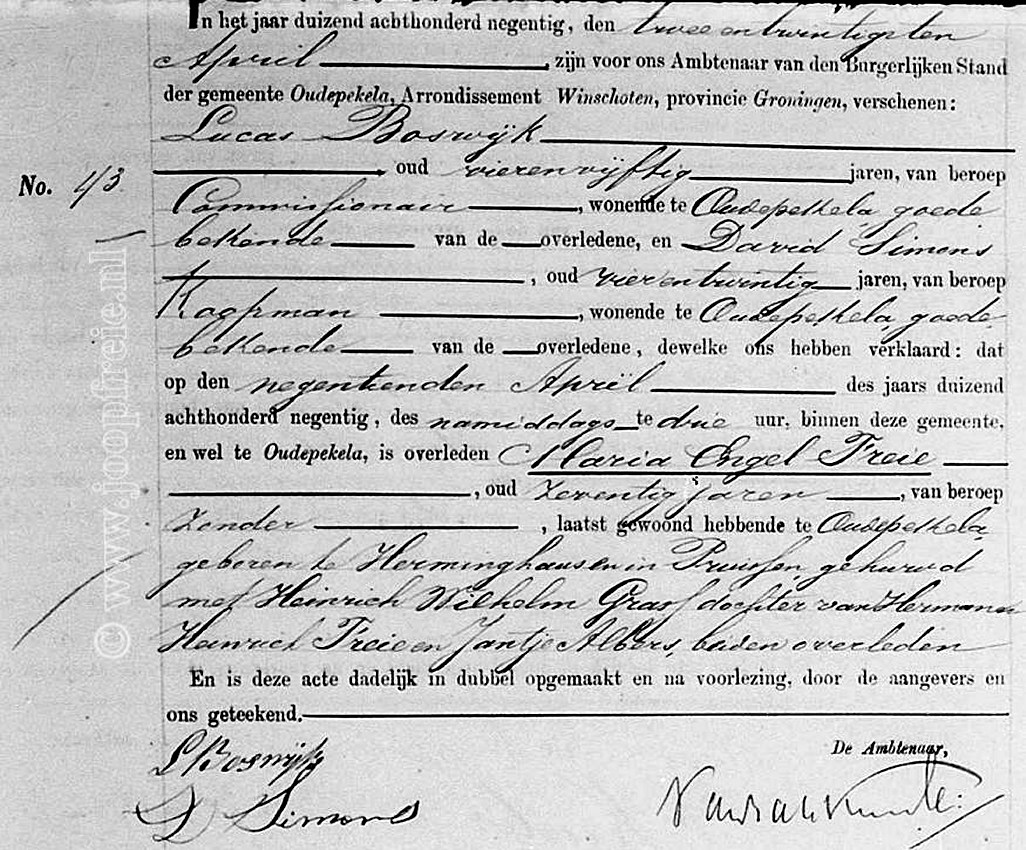 In het jaar duizend achthonderd negentig, den twee en twintigsten
April, zijn voor ons Ambtenaar van den Burgerlijken Stand
der gemeente Oudepekela, Arrondissement Winschoten, provincie Groningen, verschenen:
Lucas Boswijk
, oud vierenvijftig jaren, van beroep
No. 43
Commissionair, wonende te Oudepekela, goede
bekende van de overledene, en David Simons
, oud vierentwintig jaren, van beroep
Koopman, wonende te Oudepekela, goede
bekende van de overledene, dewelke ons hebben verklaard: dat
op den negentienden April des jaars duizend
achthonderd negentig, des namiddags te drie uur, binnen deze gemeente,
en wel te Oudepekela, is overleden Maria Engel Freie
, oud zeventig jaren, van beroep
zonder, laatst gewoond hebbende te Oudepekela,
geboren te Herminghausen in Pruissen, gehuwd
met Heinrich Wilhelm Grasf dochter van Hermann
Heinrich Freie en Jantje Albers, beiden overleden
En is deze acte dadelijk in dubbel opgemaakt en na voorlezing, door de aangevers en
ons geteekend.
De Ambtenaar,
L Boswijk
D Simons
© www.joopfreie.nl